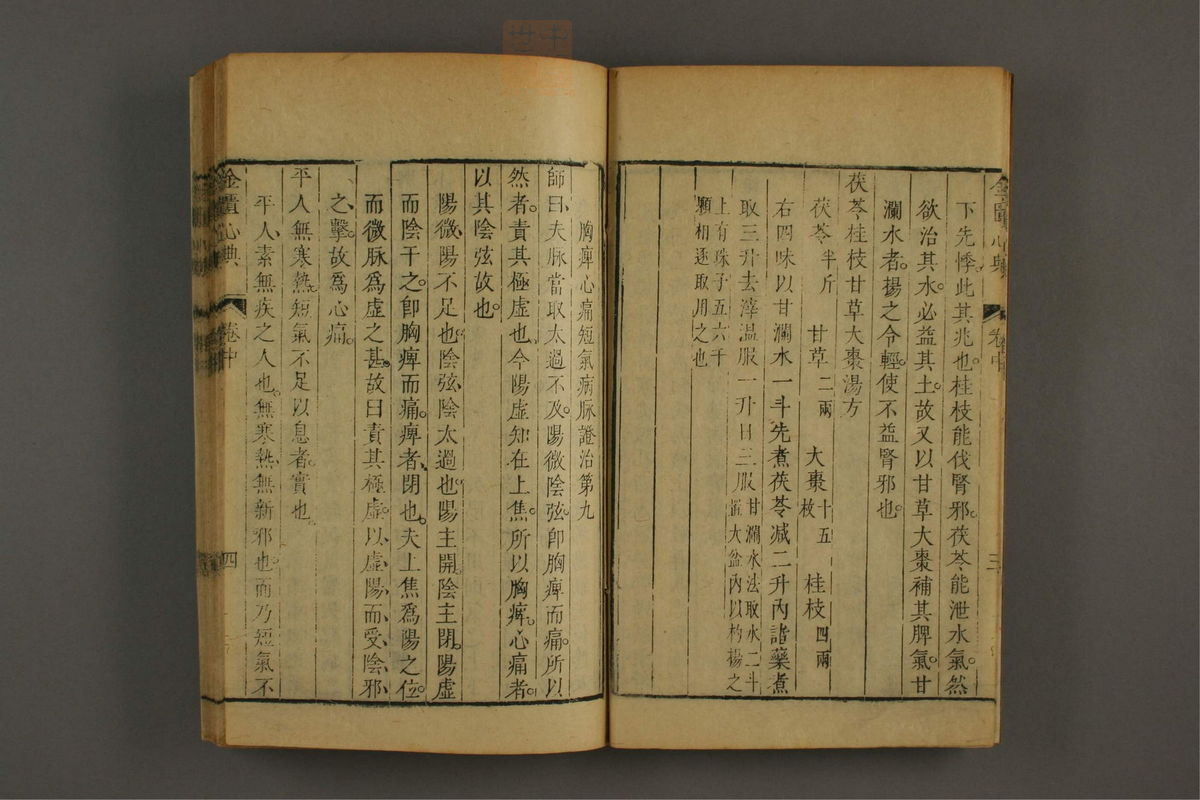 金匱心典 卷中 三
下先悸此其兆也桂枝能伐腎邪茯苓能泄水氣然
欲治其水必益其土故又以甘草大棗補其脾氣甘
瀾水者揚之令輕使不益腎邪也
茯苓桂枝甘草大棗湯方
茯苓半斤 甘草二兩 大棗十五枚 桂枝四兩
右四味以甘瀾水一斗先煮茯苓减二升內諸藥煮
取三升去滓温服一升日三服甘瀾水法取水二斗置大盆內以杓揚之
上有珠子五六千顆相逐取用之也
胸痺心痛短氣病脉證治第九
師曰夫脉當取太過不及陽微陰弦卽胸痺而痛所以
然者責其極虛也今陽虛知在上焦所以胸痺心痛者
以其陰弦故也
陽微陽不足也陰弦陰太過也陽主開陰主閉陽虛
而陰干之卽胸痺而痛痺者閉也夫上焦爲陽之位
而微脉爲虛之甚故曰責其極虛以虛陽而受陰邪
之擊故爲心痛
平人無寒熱短氣不足以息者實也
平人素無疾之人也無寒熱無新邪也而乃短氣不
金匱心典 卷中 四